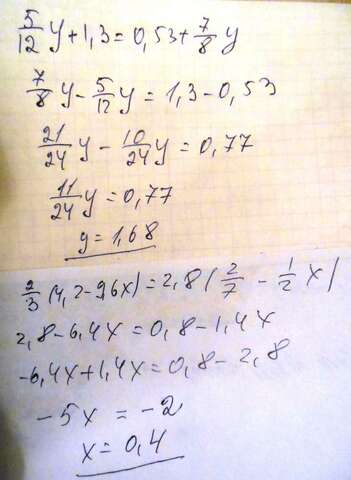 5/12 y + 1,3 = 0,53 + 7/8 y
7/8 y - 5/12 y = 1,3 - 0,53
21/24 y - 10/24 y = 0,77
11/24 y = 0,77
y = 1,68
2/3 (4,2 - 9,6x) = 2,8 (2/7 - 1/2 x)
2,8 - 6,4x = 0,8 - 1,4x
-6,4x + 1,4x = 0,8 - 2,8
-5x = -2
x = 0,4